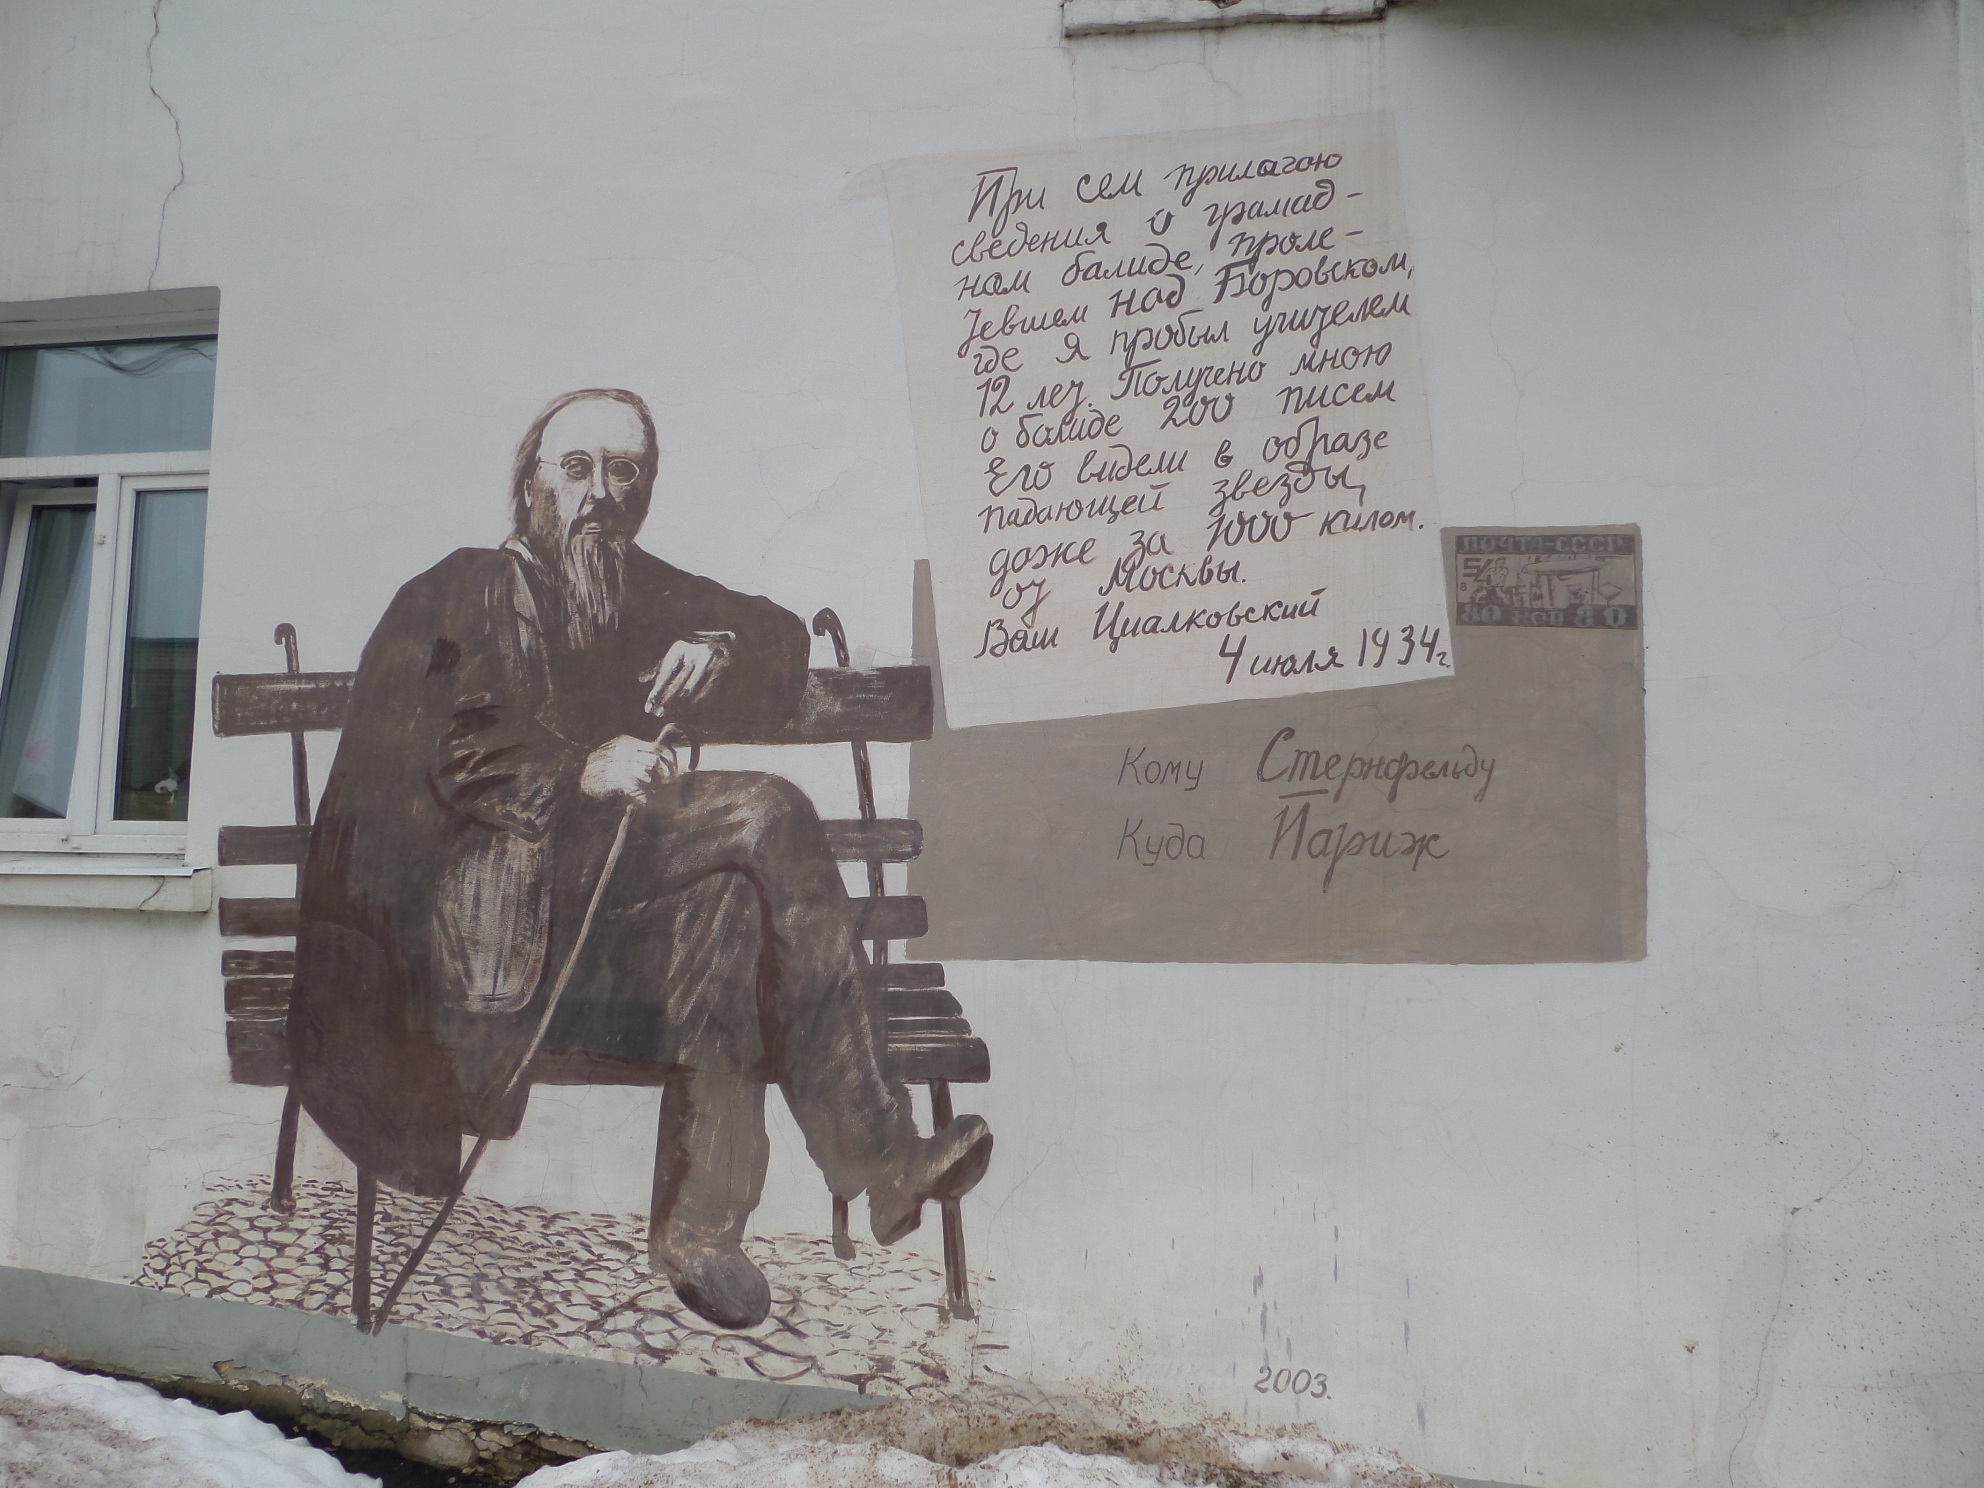 При сем прилагаю
сведения о грамад-
нам балиде, проле-
тевшем над Боровском,
где я пробыл учителем
12 лет. Получено мною
о балиде 200 писем
Его видели в образе
падающей звезды,
даже за 1000 килом.
от Москвы.
Ваш Циалковский
4 июля 1934г.
ПОЧТА-СССР
54
8
80 КОП 80
Кому Стернфельду
Куда Париж
2003.